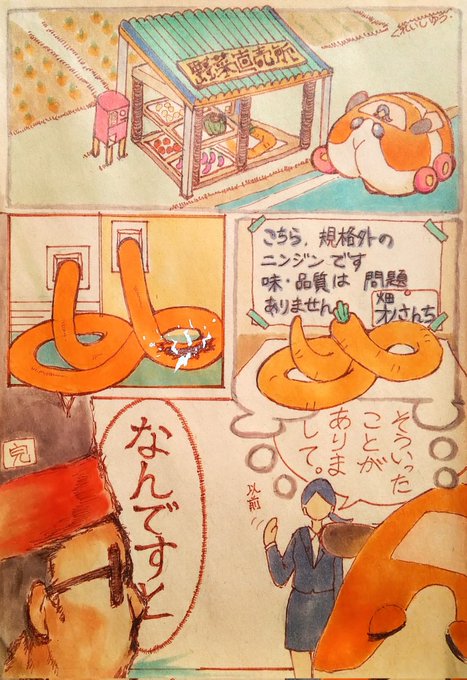 くれいじゅう。
野菜直売所
こちら、規格外の
ニンジンです
味・品質は 問題
ありません
畑
オノさんち
そういった
ことが
ありま
して。
以前
なんですと
完